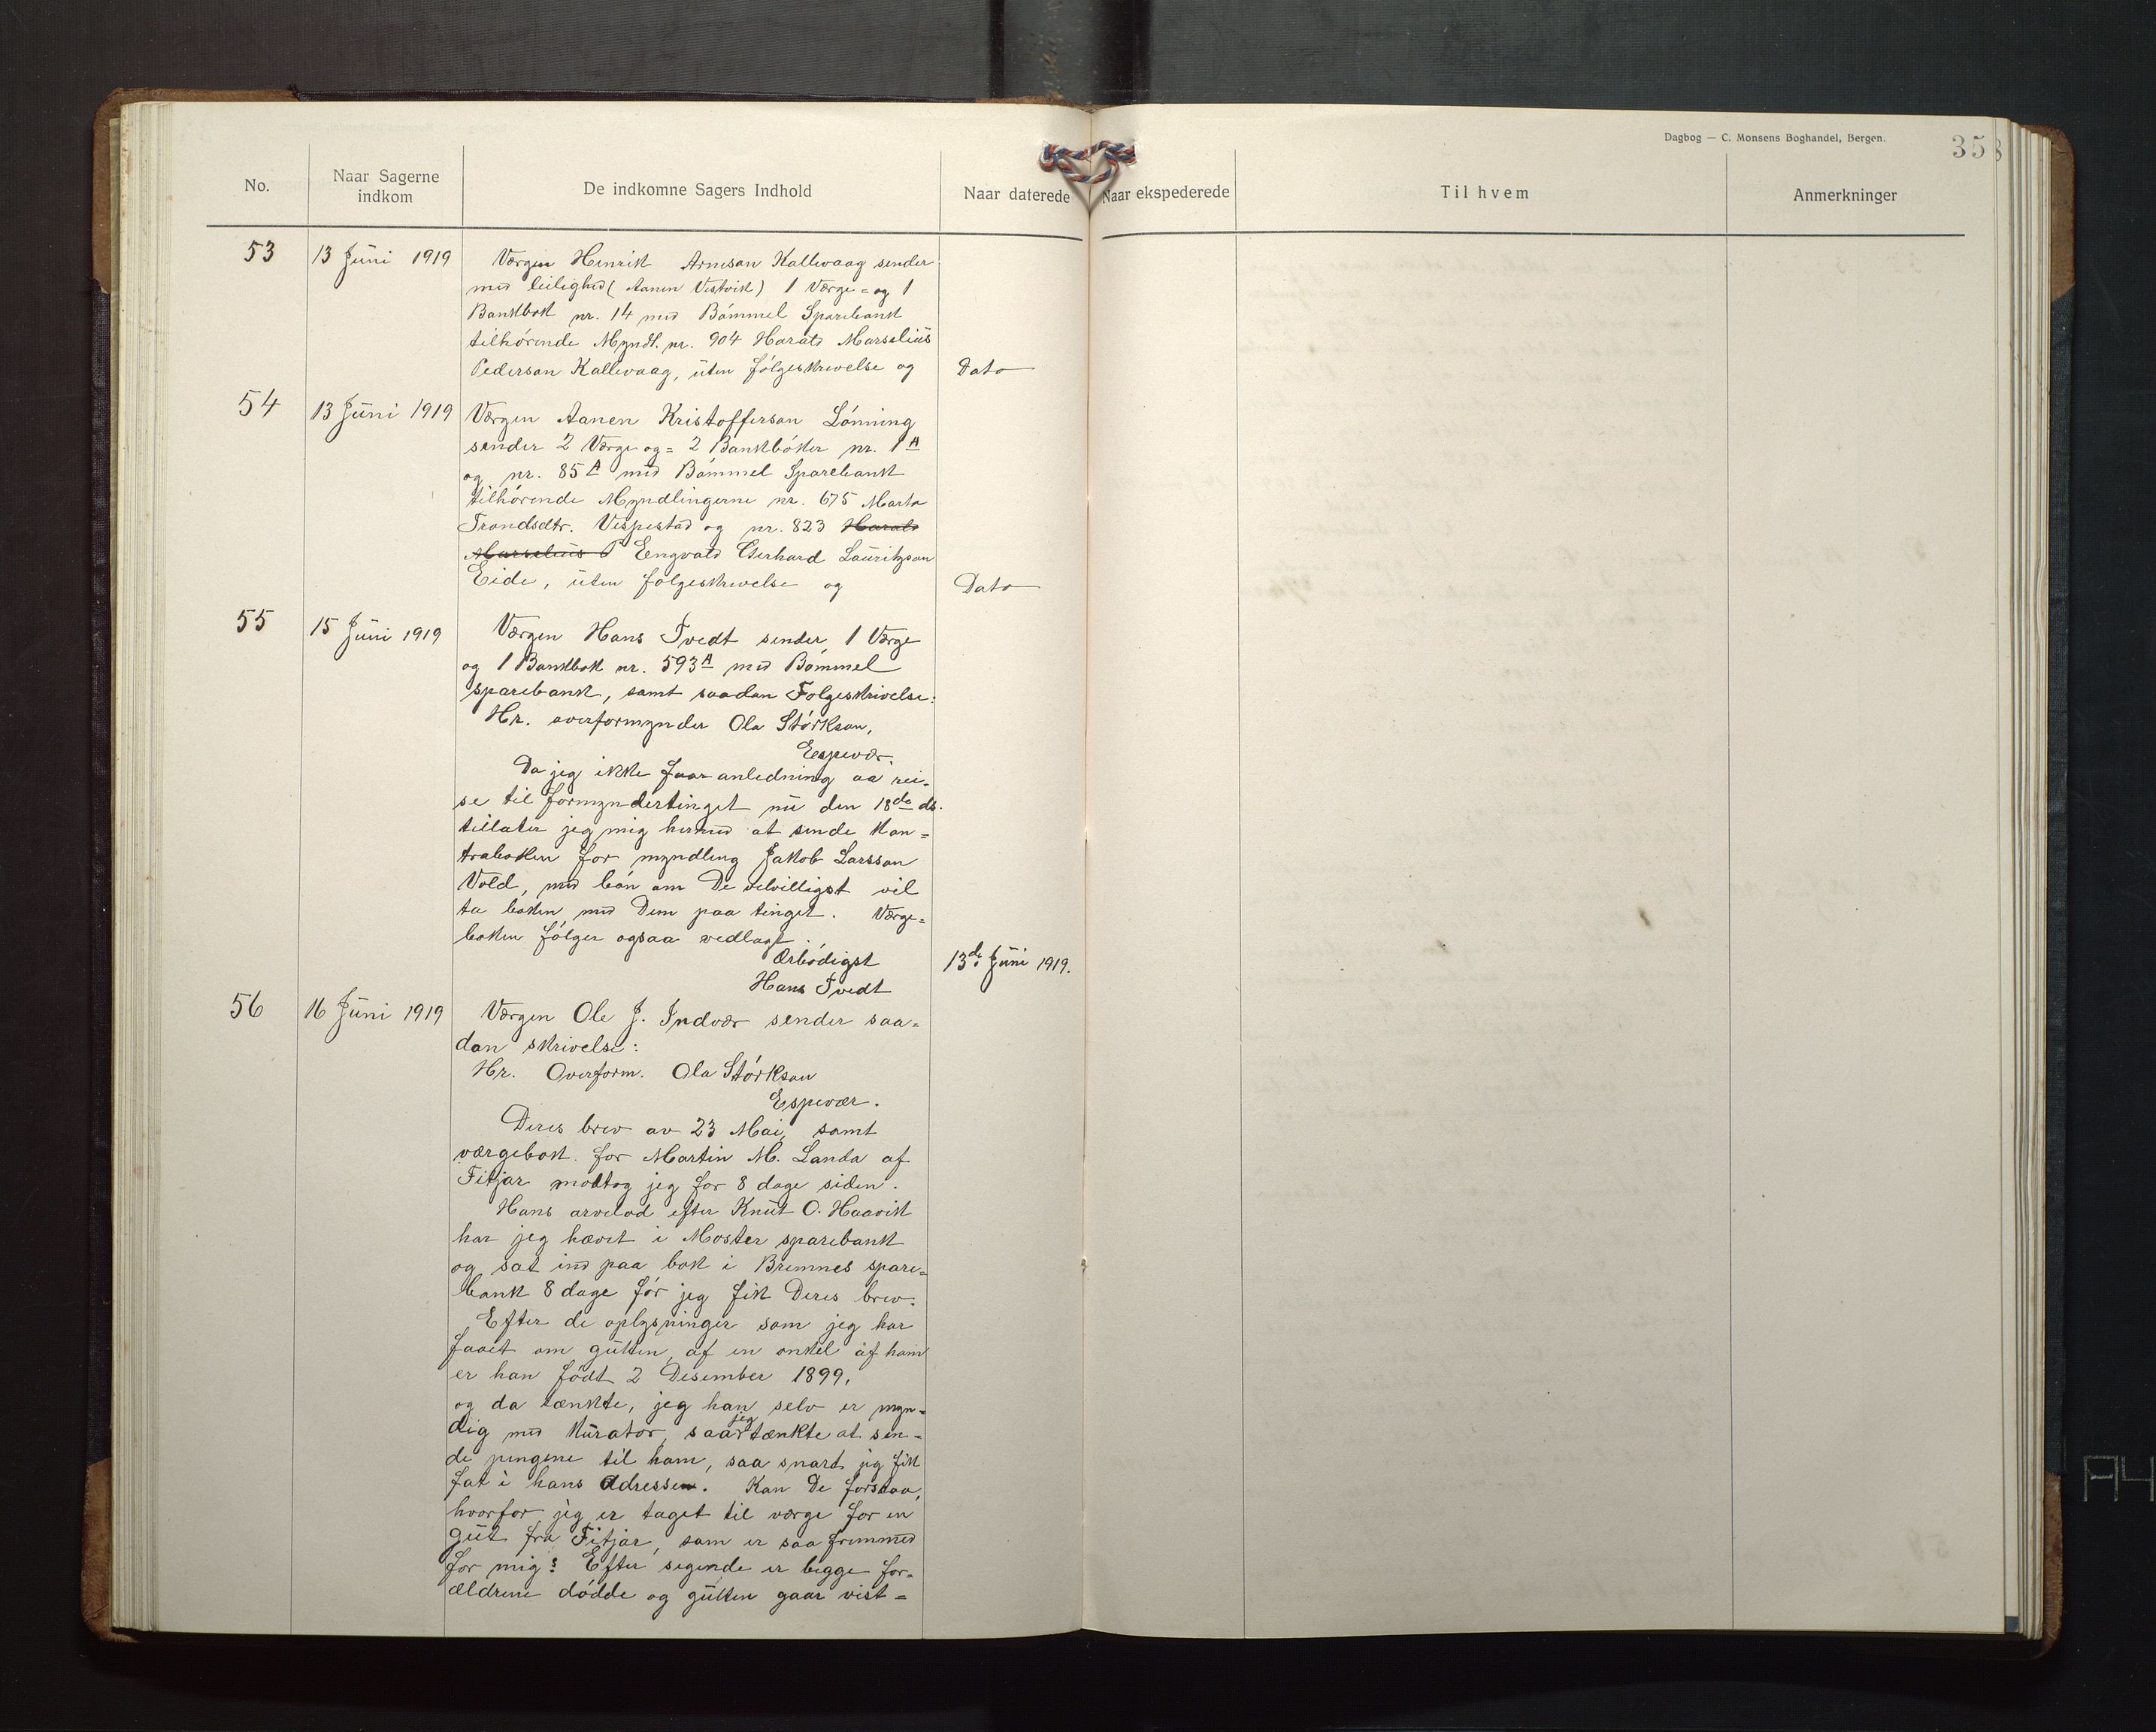 Dagbog — C. Monsens Boghandel, Bergen.
358
No.
Naar Sagerne indkom
De indkomne Sagers Indhold
Naar daterede
Naar ekspederede
Til hvem
Anmerkninger
53 13 Juni 1919 Værgen Henrik Arnesan Kallevaag sender
med leilighed (Aanen Vestvik) 1 Værge= og 1
Bankbok nr. 14 med Bømmel Sparebank
tilhørende Myndl. nr. 904 Harald Marselius
Pedersan Kallevaag, uten følgeskrivelse og Dato
54 13 Juni 1919 Værgen Aanen Kristoffersan Lønning
sender 2 Værge og= 2 Bankbøker nr. 1A
og nr. 85A med Bømmel Sparebank
tilhørende Myndlingerne nr. 675 Marta
Trondsdtr. Vespestad og nr. 823 Harald
Marselius P Engvald Gerhard Lauritzsan
Eide, uten følgeskrivelse og Dato
55 15 Juni 1919 Værgen Hans Tvedt sender 1 Værge
og 1 Bankbok nr. 593A med Bømmel
sparebank, samt saadan Følgeskrivelse:
Hr. overformynder Ola Størksan,
Espevær.
Da jeg ikke faar anledning aa rei-
se til formyndertinget nu den 18de ds.
tillater jeg mig hermed at sende kon=
traboken for myndling Jakob Larssan
Vold, med bøn om De velvilligst vil
ta boken med Dem paa tinget. Værge=
boken følger ogsaa vedlagt.
Ærbødigst 13de Juni 1919.
Hans Tvedt
56 16 Juni 1919 Værgen Ole J. Indvær sender saa=
dan skrivelse:
Hr. Overform. Ola Størksan
Espevær.
Deres brev av 23 Mai, samt
værgebok for Martin M. Landa af
Fitjar mottog jeg for 8 dage siden.
Hans arvelod efter Knut O. Haavik
har jeg hævet i Moster sparebank
og sat ind paa bok i Bremnes spare=
bank 8 dage før jeg fik Deres brev.
Efter de oplysninger som jeg har
faaet om gutten, af en onkel af ham
er han født 2 Desember 1899,
og da tænkte, jeg han selv er myn=
dig med Kurator, saa jeg tænkte at sen=
de pengene til ham, saa snart jeg fik
fat i hans Adresse. Kan De forstaa,
hvorfor jeg er taget til værge for en
gut fra Fitjar, som er saa fremmed
for mig? Efter sigende er begge for=
ældrene dødde og gutten gaar vist=